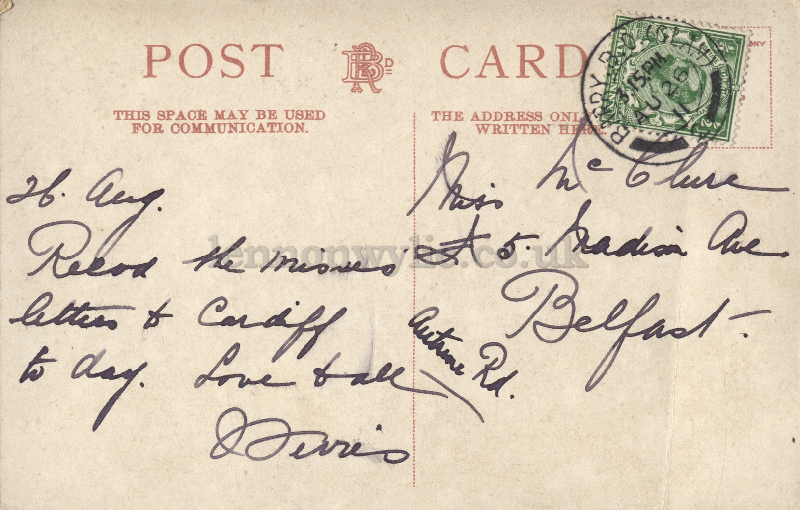 POST CARD
THIS SPACE MAY BE USED
FOR COMMUNICATION.
THE ADDRESS ONLY
WRITTEN HERE
BARRY ISLAND
3.15 PM
AU 26
11
26. Aug.
Recvd the misses
letters & Cardiff
to day. Love to all
Miss McClure
5. Madison Ave
Belfast.
Antrim Rd.
lennonwylie.co.uk